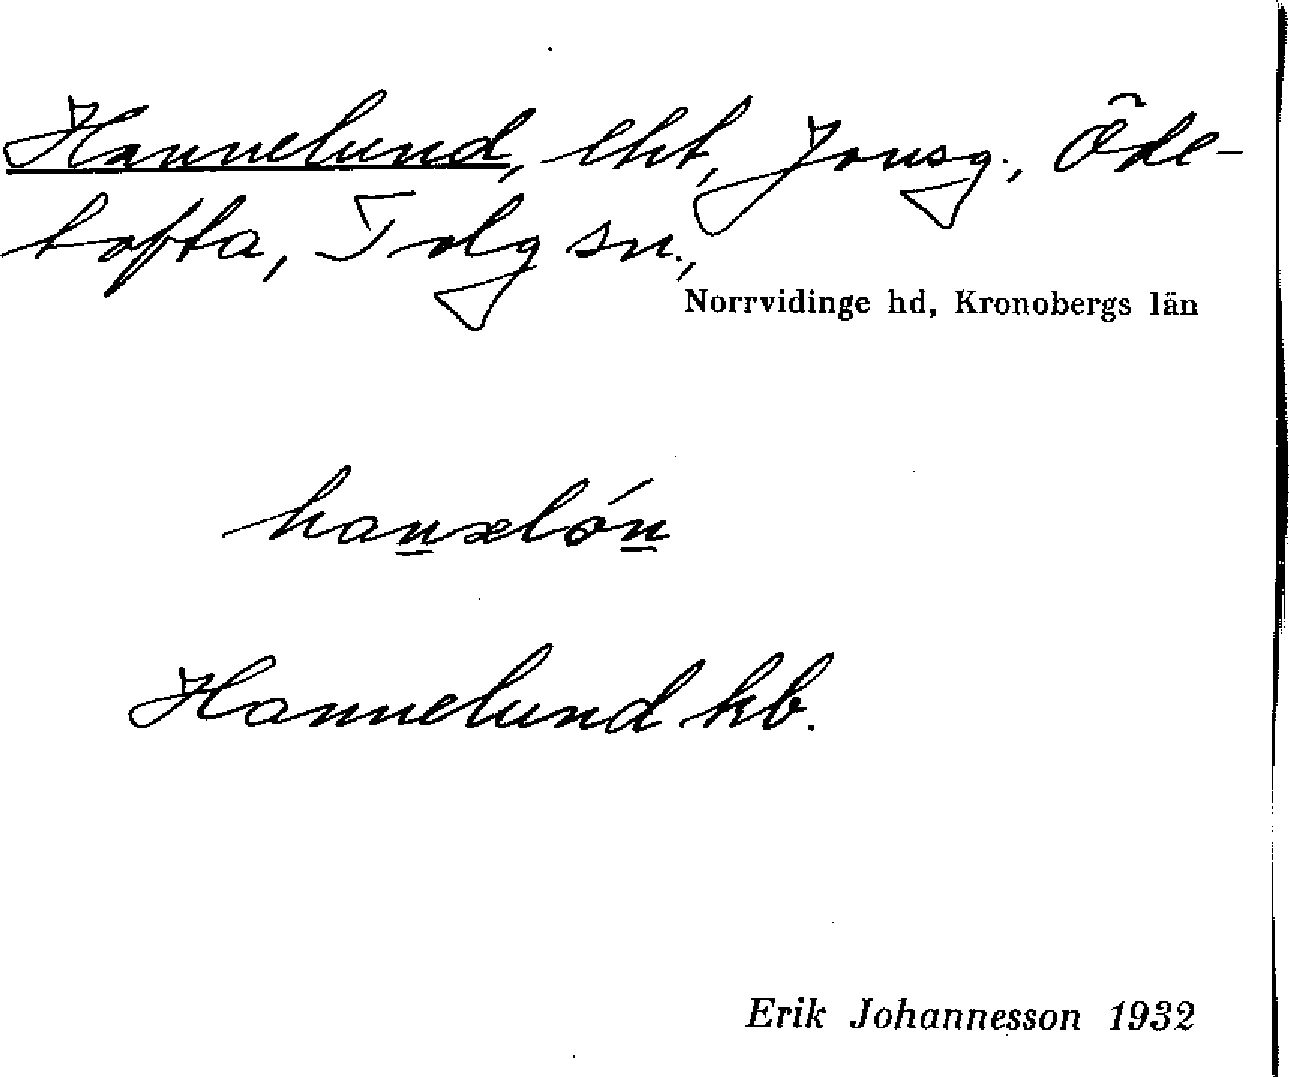 Hannelund, lht, Jonsg., Öde-
tofta, Tolg sn.,
Norrvidinge hd, Kronobergs län
Hannelund kb.
Erik Johannesson 1932